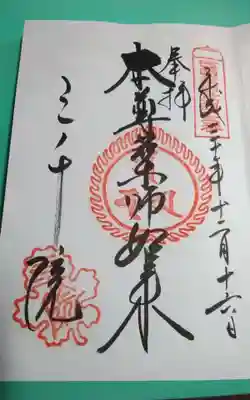 平成二十年十二月十六日
奉拝
本尊薬師如来
三千院